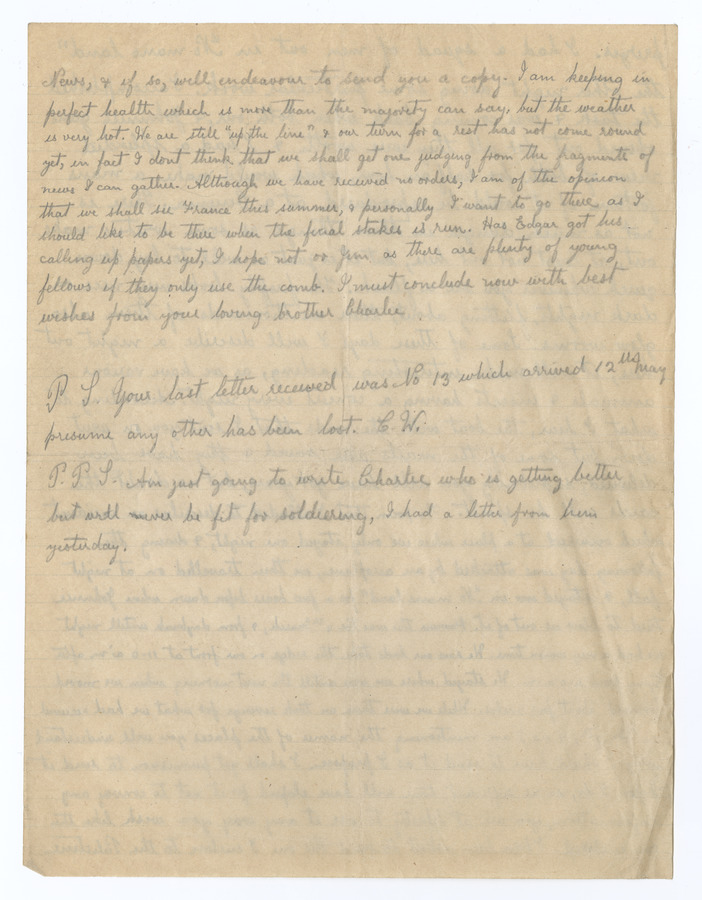 News, & if so, will endeavour to send you a copy. I am keeping in
perfect health which is more than the majority can say, but the weather
is very hot. We are still "up the line" & our turn for a rest has not come round
yet, in fact I dont think that we shall get one judging from the fragments of
news I can gather. Although we have received no orders, I am of the opinion
that we shall see France this summer, & personally I want to go there as I
should like to be there when the final stakes is run. Has Edgar got his
calling up papers yet, I hope not or Jim as there are plenty of young
fellows if they only use the comb. I must conclude now with best
wishes from your loving brother Charlie.
P S. Your last letter received was No 13 which arrived 12th May
presume any other has been lost. C.W.
P.P.S. Am just going to write Charlie who is getting better
but will never be fit for soldiering, I had a letter from him
yesterday.